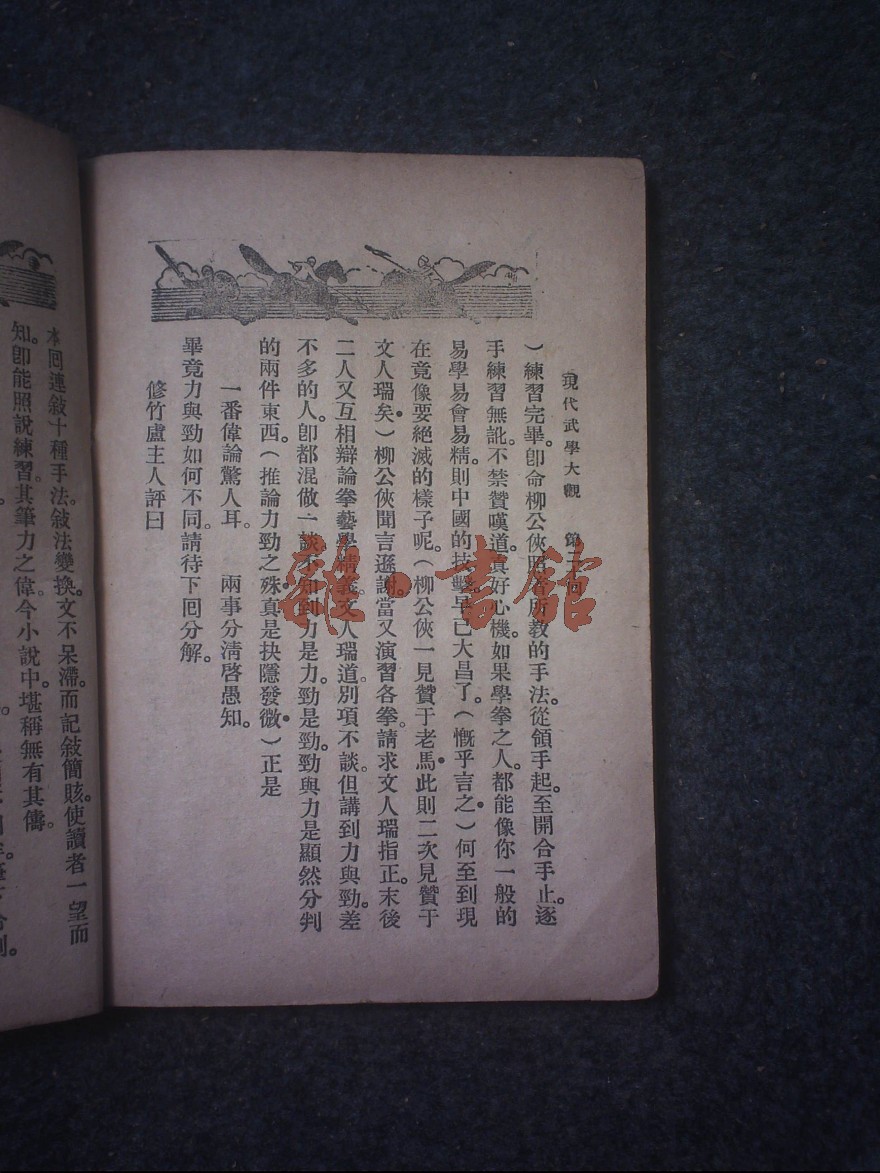 現代武學大觀　第二回
）練習完畢。卽命柳公俠照着所教的手法。從領手起。至開合手止。逐
手練習無訛。不禁贊嘆道。真好心機。如果學拳之人。都能像你一般的
易學易會易精。則中國的技擊早已大昌了。（慨乎言之）何至到現
在竟像要絕滅的樣子呢。（柳公俠一見贊于老馬。此則二次見贊于
文人瑞矣）柳公俠聞言遜謝。當又演習各拳。請求文人瑞指正。末後
二人又互相辯論拳藝學精義。文人瑞道。別項不談。但講到力與勁。差
不多的人。卽都混做一談。不知到力是力。勁是勁。勁與力是顯然分判
的兩件東西。（推論力勁之殊。真是抉隱發微）正是
一番偉論驚人耳。　兩事分淸啓愚知。
畢竟力與勁如何不同。請待下囘分解。
修竹盧主人評曰
本囘連敍十種手法。敍法變換。文不呆滯。而記敍簡賅。使讀者一望而
知。卽能照說練習。其筆力之偉。今小說中。堪稱無有其儔。
雜·書館